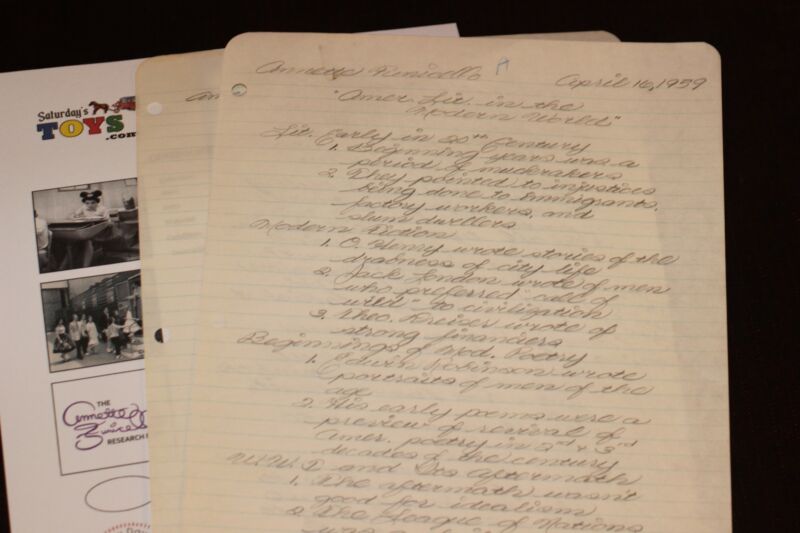 Saturday's
TOYS
.com
THE
Annette
Funicello
RESEARCH
an
Annette Funicello A April 16, 1959
"Amer. Lit. in the
Modern World"
Lit. Early in 20th Century
1. Beginning years was a
period of muckrakers
2. They pointed to injustices
being done to immigrants,
factory workers, and
slum dwellers
Modern Fiction
1. O. Henry wrote stories of the
drabness of city life
2. Jack London wrote of men
who preferred "call of
wild" to civilization
3. Theo. Dreiser wrote of
strong financiers
Beginnings of Mod. Poetry
1. Edwin Robinson wrote
portraits of men of the
age
2. His early poems were a
preview of revival of
Amer. poetry in 2nd + 3rd
decades of the century
W.W. I and Its Aftermath
1. The aftermath wasn't
good for idealism
2. The League of Nations